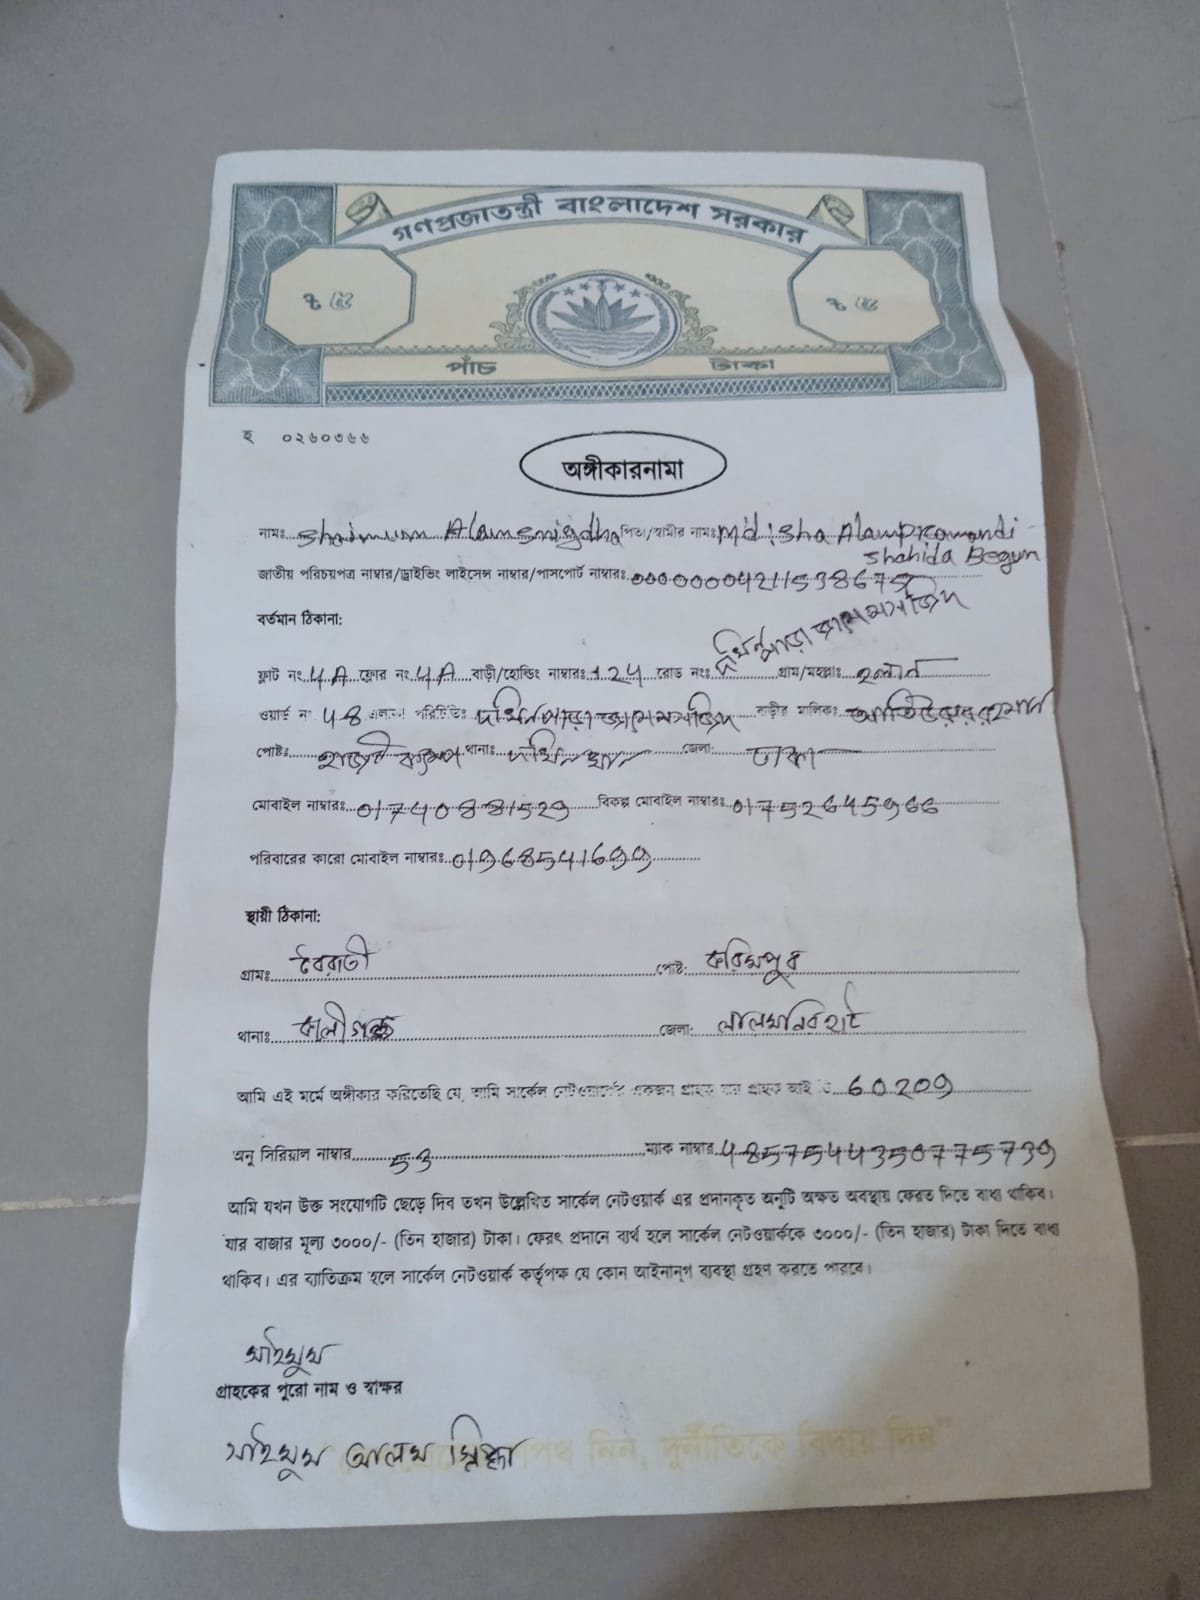 গণপ্রজাতন্ত্রী বাংলাদেশ সরকার
৳ ৫ ৳ ৫
পাঁচ টাকা
হ ০২৬০৩৬৬
অঙ্গীকারনামা
নামঃ Shaimum Alam Snigdha পিতা/স্বামীর নামঃ Md. Isha Alam Pramandi
Shahida Begum
জাতীয় পরিচয়পত্র নাম্বার/ড্রাইভিং লাইসেন্স নাম্বার/পাসপোর্ট নাম্বারঃ
বর্তমান ঠিকানা:
দখিনপাড়া জামে মসজিদ
ফ্লাট নং 4A ফ্লোর নং 4A বাড়ী/হোল্ডিং নাম্বারঃ 124 রোড নংঃ গ্রাম/মহল্লাঃ হলান
ওয়ার্ড নং 48 এলাকা পরিচিতিঃ দখিনপাড়া জামে মসজিদ বাড়ীর মালিকঃ আতিউর রহমান
পোষ্টঃ হাজী ক্যাম্প থানাঃ দখিনখান জেলা: ঢাকা
মোবাইল নাম্বারঃ 01740881529 বিকল্প মোবাইল নাম্বারঃ 01752645966
পরিবারের কারো মোবাইল নাম্বারঃ 01968541699
স্থায়ী ঠিকানা:
গ্রামঃ বৈরাতী পোষ্ট: করিমপুর
থানাঃ কালীগঞ্জ জেলা: লালমনিরহাট
আমি এই মর্মে অঙ্গীকার করিতেছি যে, আমি সার্কেল নেটওয়ার্কের একজন গ্রাহক যার গ্রাহক আই ডি 60209
অনু সিরিয়াল নাম্বার 53 ম্যাক নাম্বার 4857544350775739
আমি যখন উক্ত সংযোগটি ছেড়ে দিব তখন উল্লেখিত সার্কেল নেটওয়ার্ক এর প্রদানকৃত অনুটি অক্ষত অবস্থায় ফেরত দিতে বাধ্য থাকিব।
যার বাজার মূল্য ৩০০০/- (তিন হাজার) টাকা। ফেরৎ প্রদানে ব্যর্থ হলে সার্কেল নেটওয়ার্ককে ৩০০০/- (তিন হাজার) টাকা দিতে বাধ্য
থাকিব। এর ব্যাতিক্রম হলে সার্কেল নেটওয়ার্ক কর্তৃপক্ষ যে কোন আইনানুগ ব্যবস্থা গ্রহণ করতে পারবে।
সাইমুম
গ্রাহকের পুরো নাম ও স্বাক্ষর
সাইমুম আলম স্নিগ্ধা
শপথ নিন, দুর্নীতিকে বিদায় দিন"